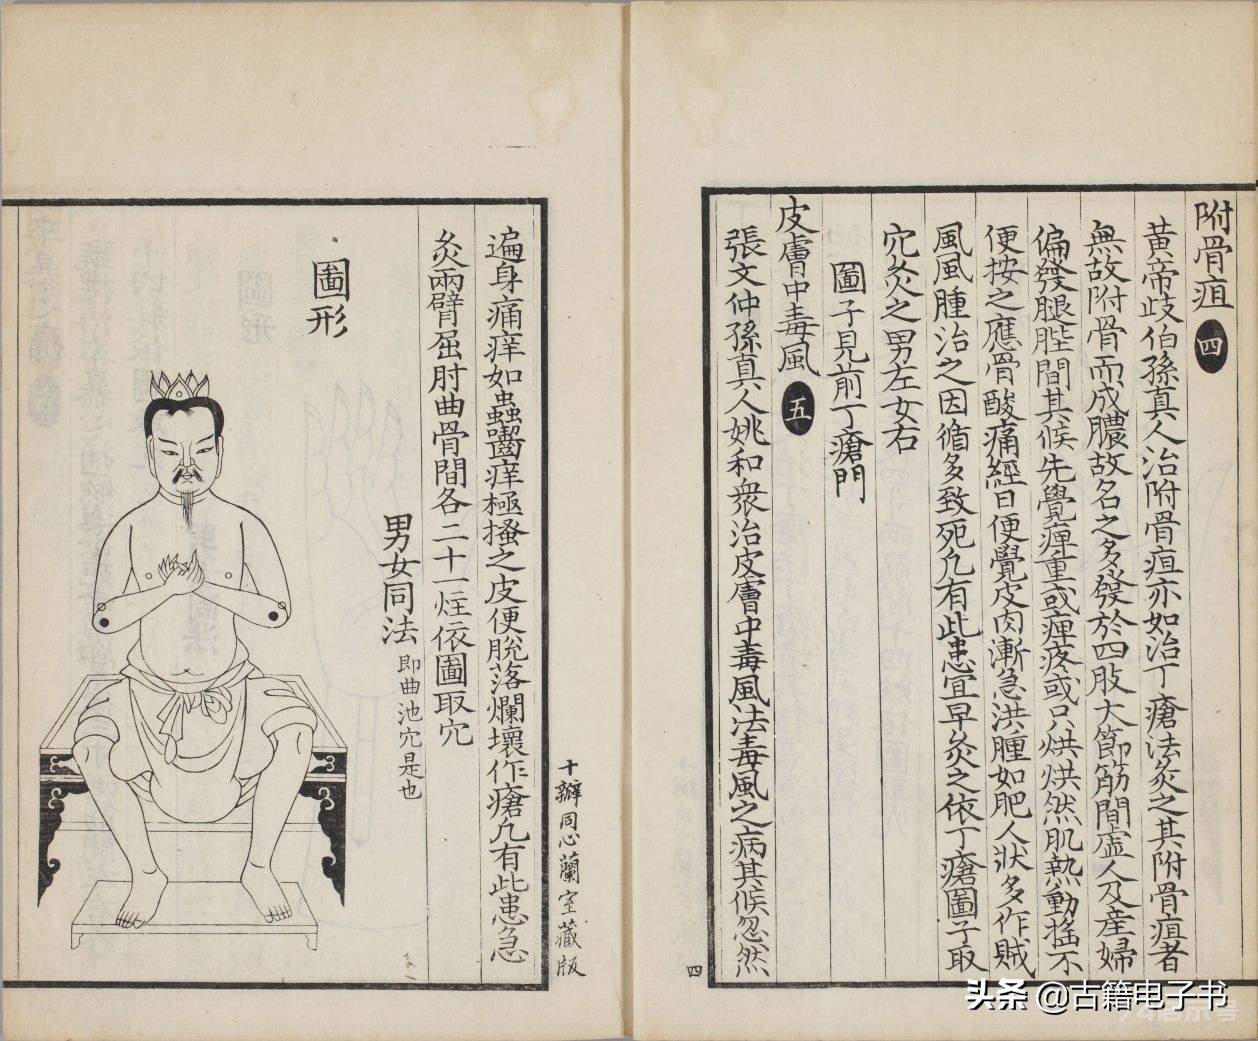 附骨疽四
黃帝歧伯孫真人治附骨疽亦如治丁瘡法灸之其附骨疽者
無故附骨而成膿故名之多發於四肢大節筋間虛人及産婦
偏發腿胜間其候先覺痺重或痺疼或只烘烘然肌熱動搖不
便按之應骨酸痛經日便覺皮肉漸急洪腫如肥人狀多作賊
風風腫治之因循多致死凡有此患宜早灸之依丁瘡圖子取
穴灸之男左女右
圖子見前丁瘡門
皮膚中毒風五
張文仲孫真人姚和衆治皮膚中毒風法毒風之病其候忽然
四
十瓣同心蘭室藏版
遍身痛痒如蟲齧痒極搔之皮便脫落爛壞作瘡凡有此患急
灸兩臂屈肘曲骨間各二十一炷依圖取穴
男女同法即曲池穴是也
圖形
头条 @古籍电子书